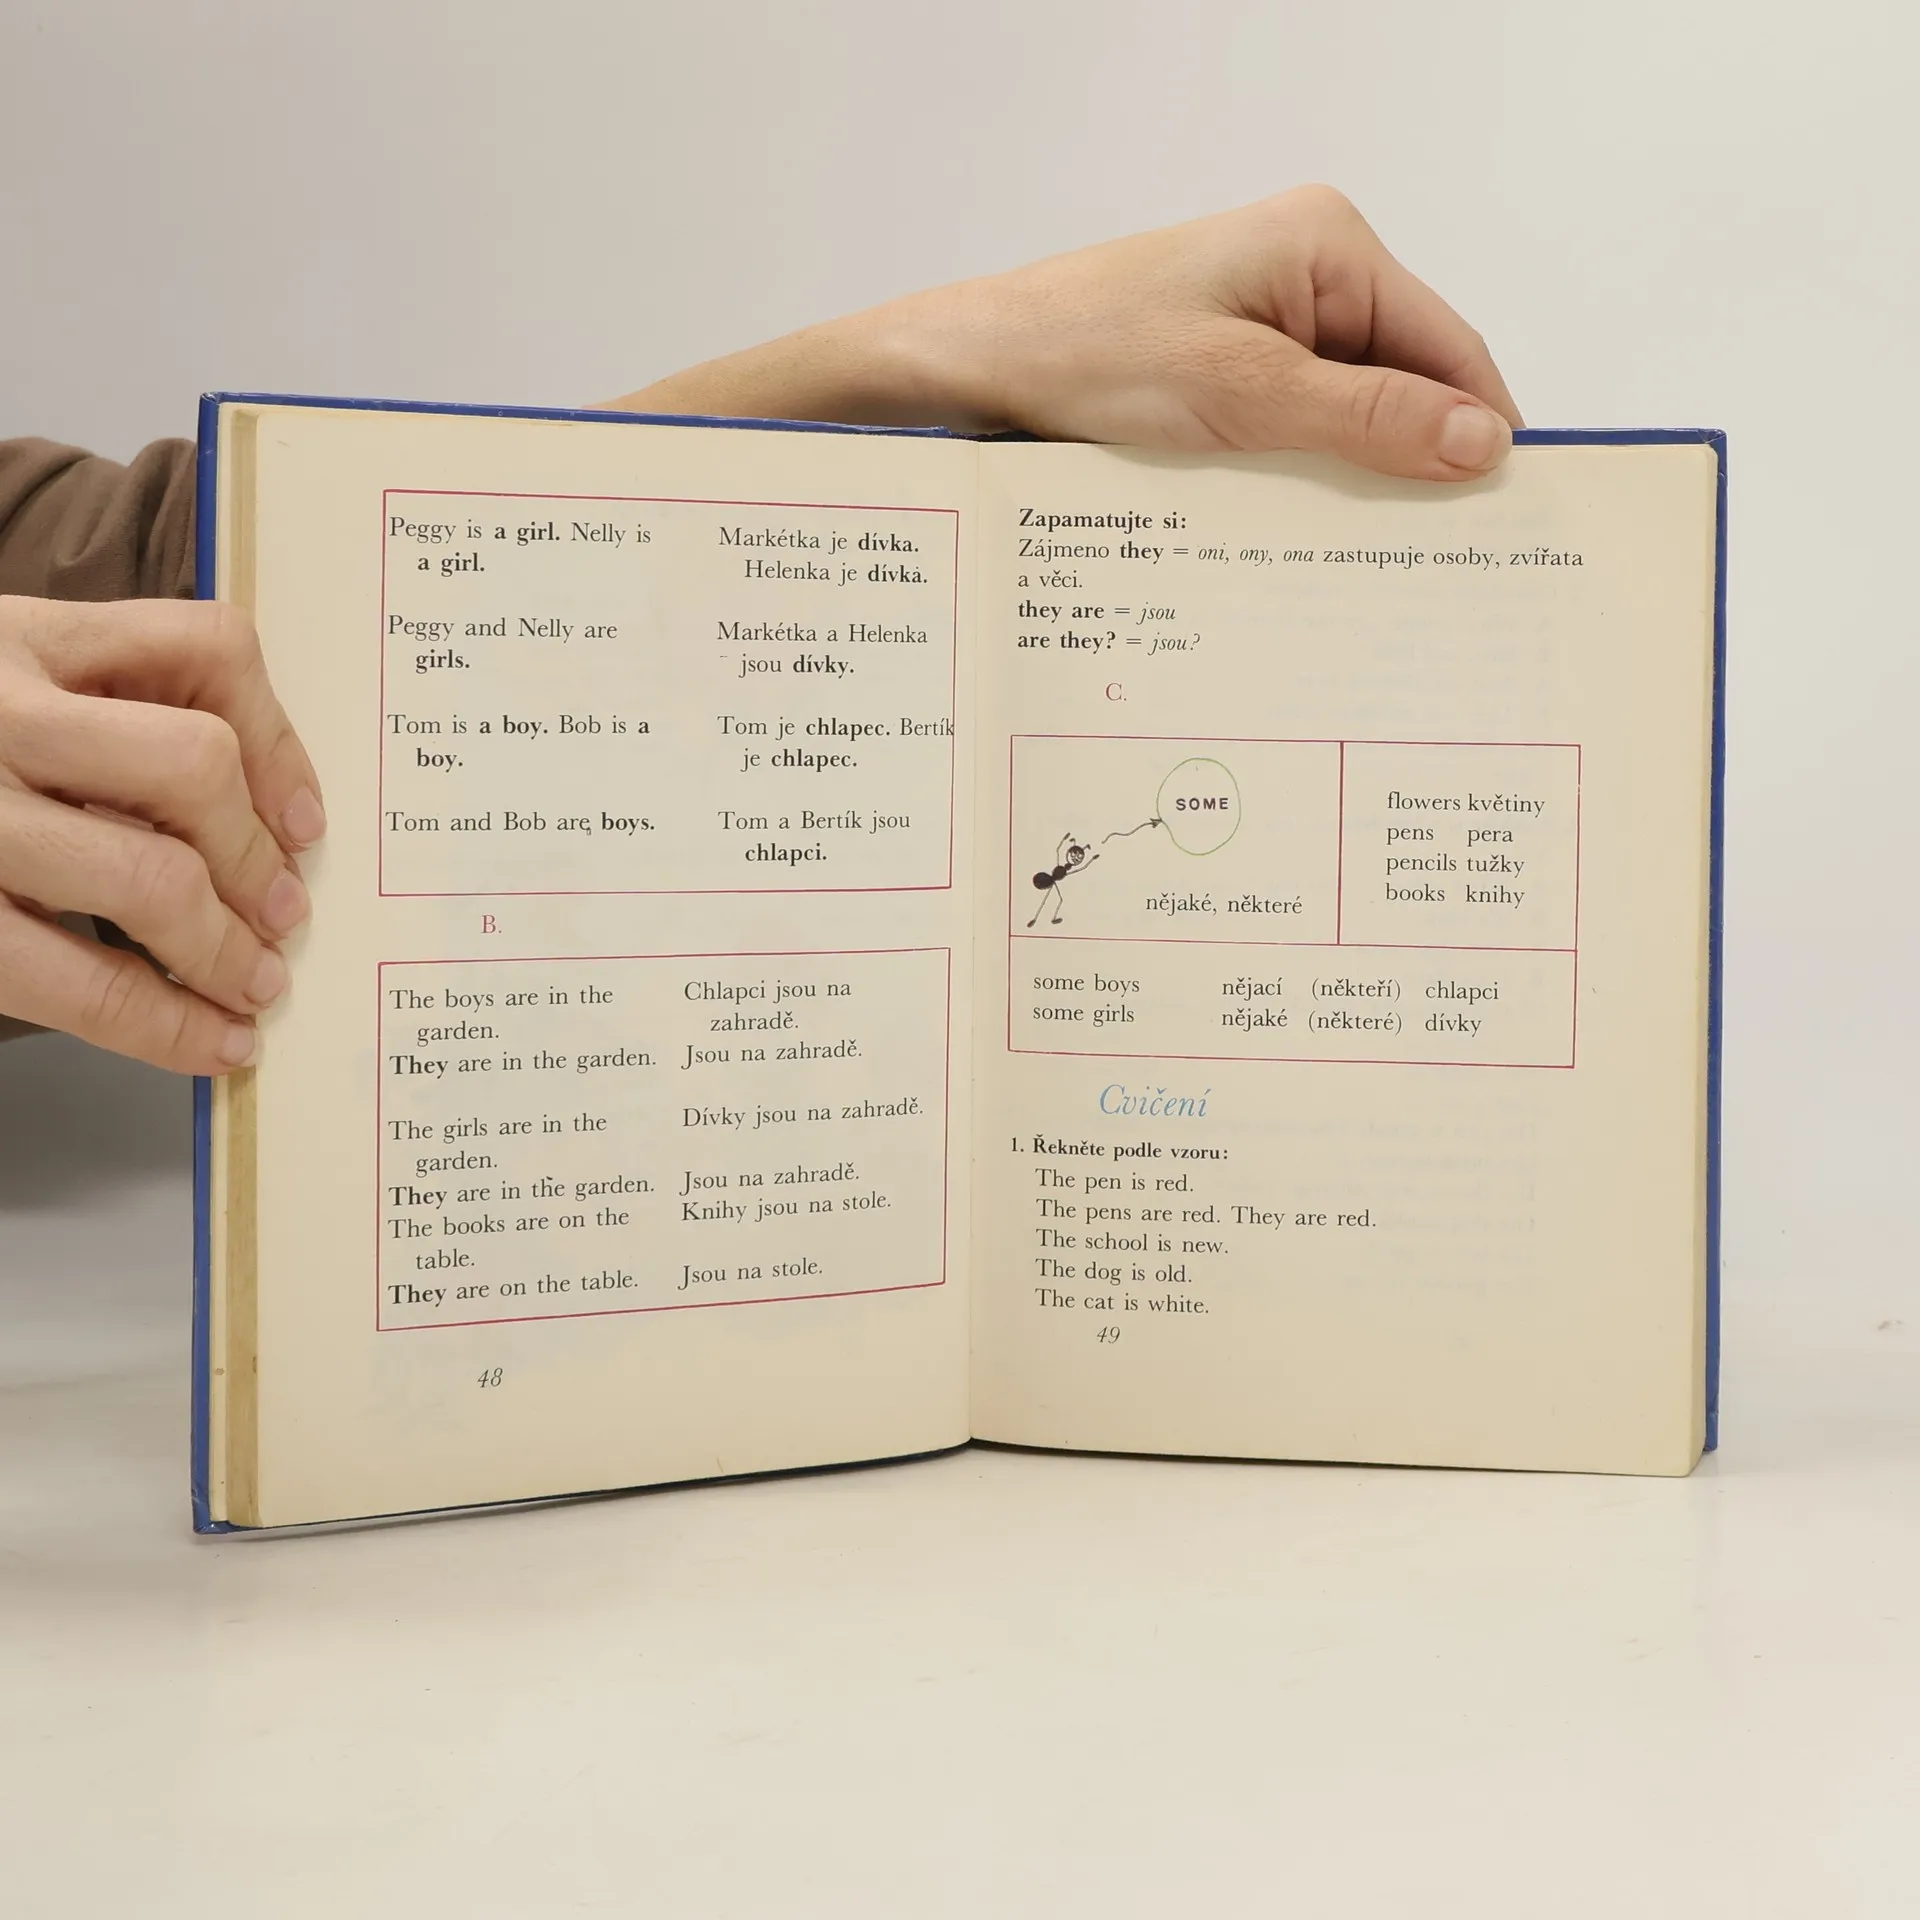 Peggy is a girl. Nelly is
a girl.
Markétka je dívka.
Helenka je dívka.
Peggy and Nelly are
girls.
Markétka a Helenka
jsou dívky.
Tom is a boy. Bob is a
boy.
Tom je chlapec. Bertík
je chlapec.
Tom and Bob are boys.
Tom a Bertík jsou
chlapci.
B.
The boys are in the
garden.
Chlapci jsou na
zahradě.
They are in the garden.
Jsou na zahradě.
The girls are in the
garden.
Dívky jsou na zahradě.
They are in the garden.
Jsou na zahradě.
The books are on the
table.
Knihy jsou na stole.
They are on the table.
Jsou na stole.
48
Zapamatujte si:
Zájmeno they = oni, ony, ona zastupuje osoby, zvířata
a věci.
they are = jsou
are they? = jsou?
C.
SOME
nějaké, některé
flowers květiny
pens pera
pencils tužky
books knihy
some boys nějací (někteří) chlapci
some girls nějaké (některé) dívky
Cvičení
1. Řekněte podle vzoru:
The pen is red.
The pens are red. They are red.
The school is new.
The dog is old.
The cat is white.
49